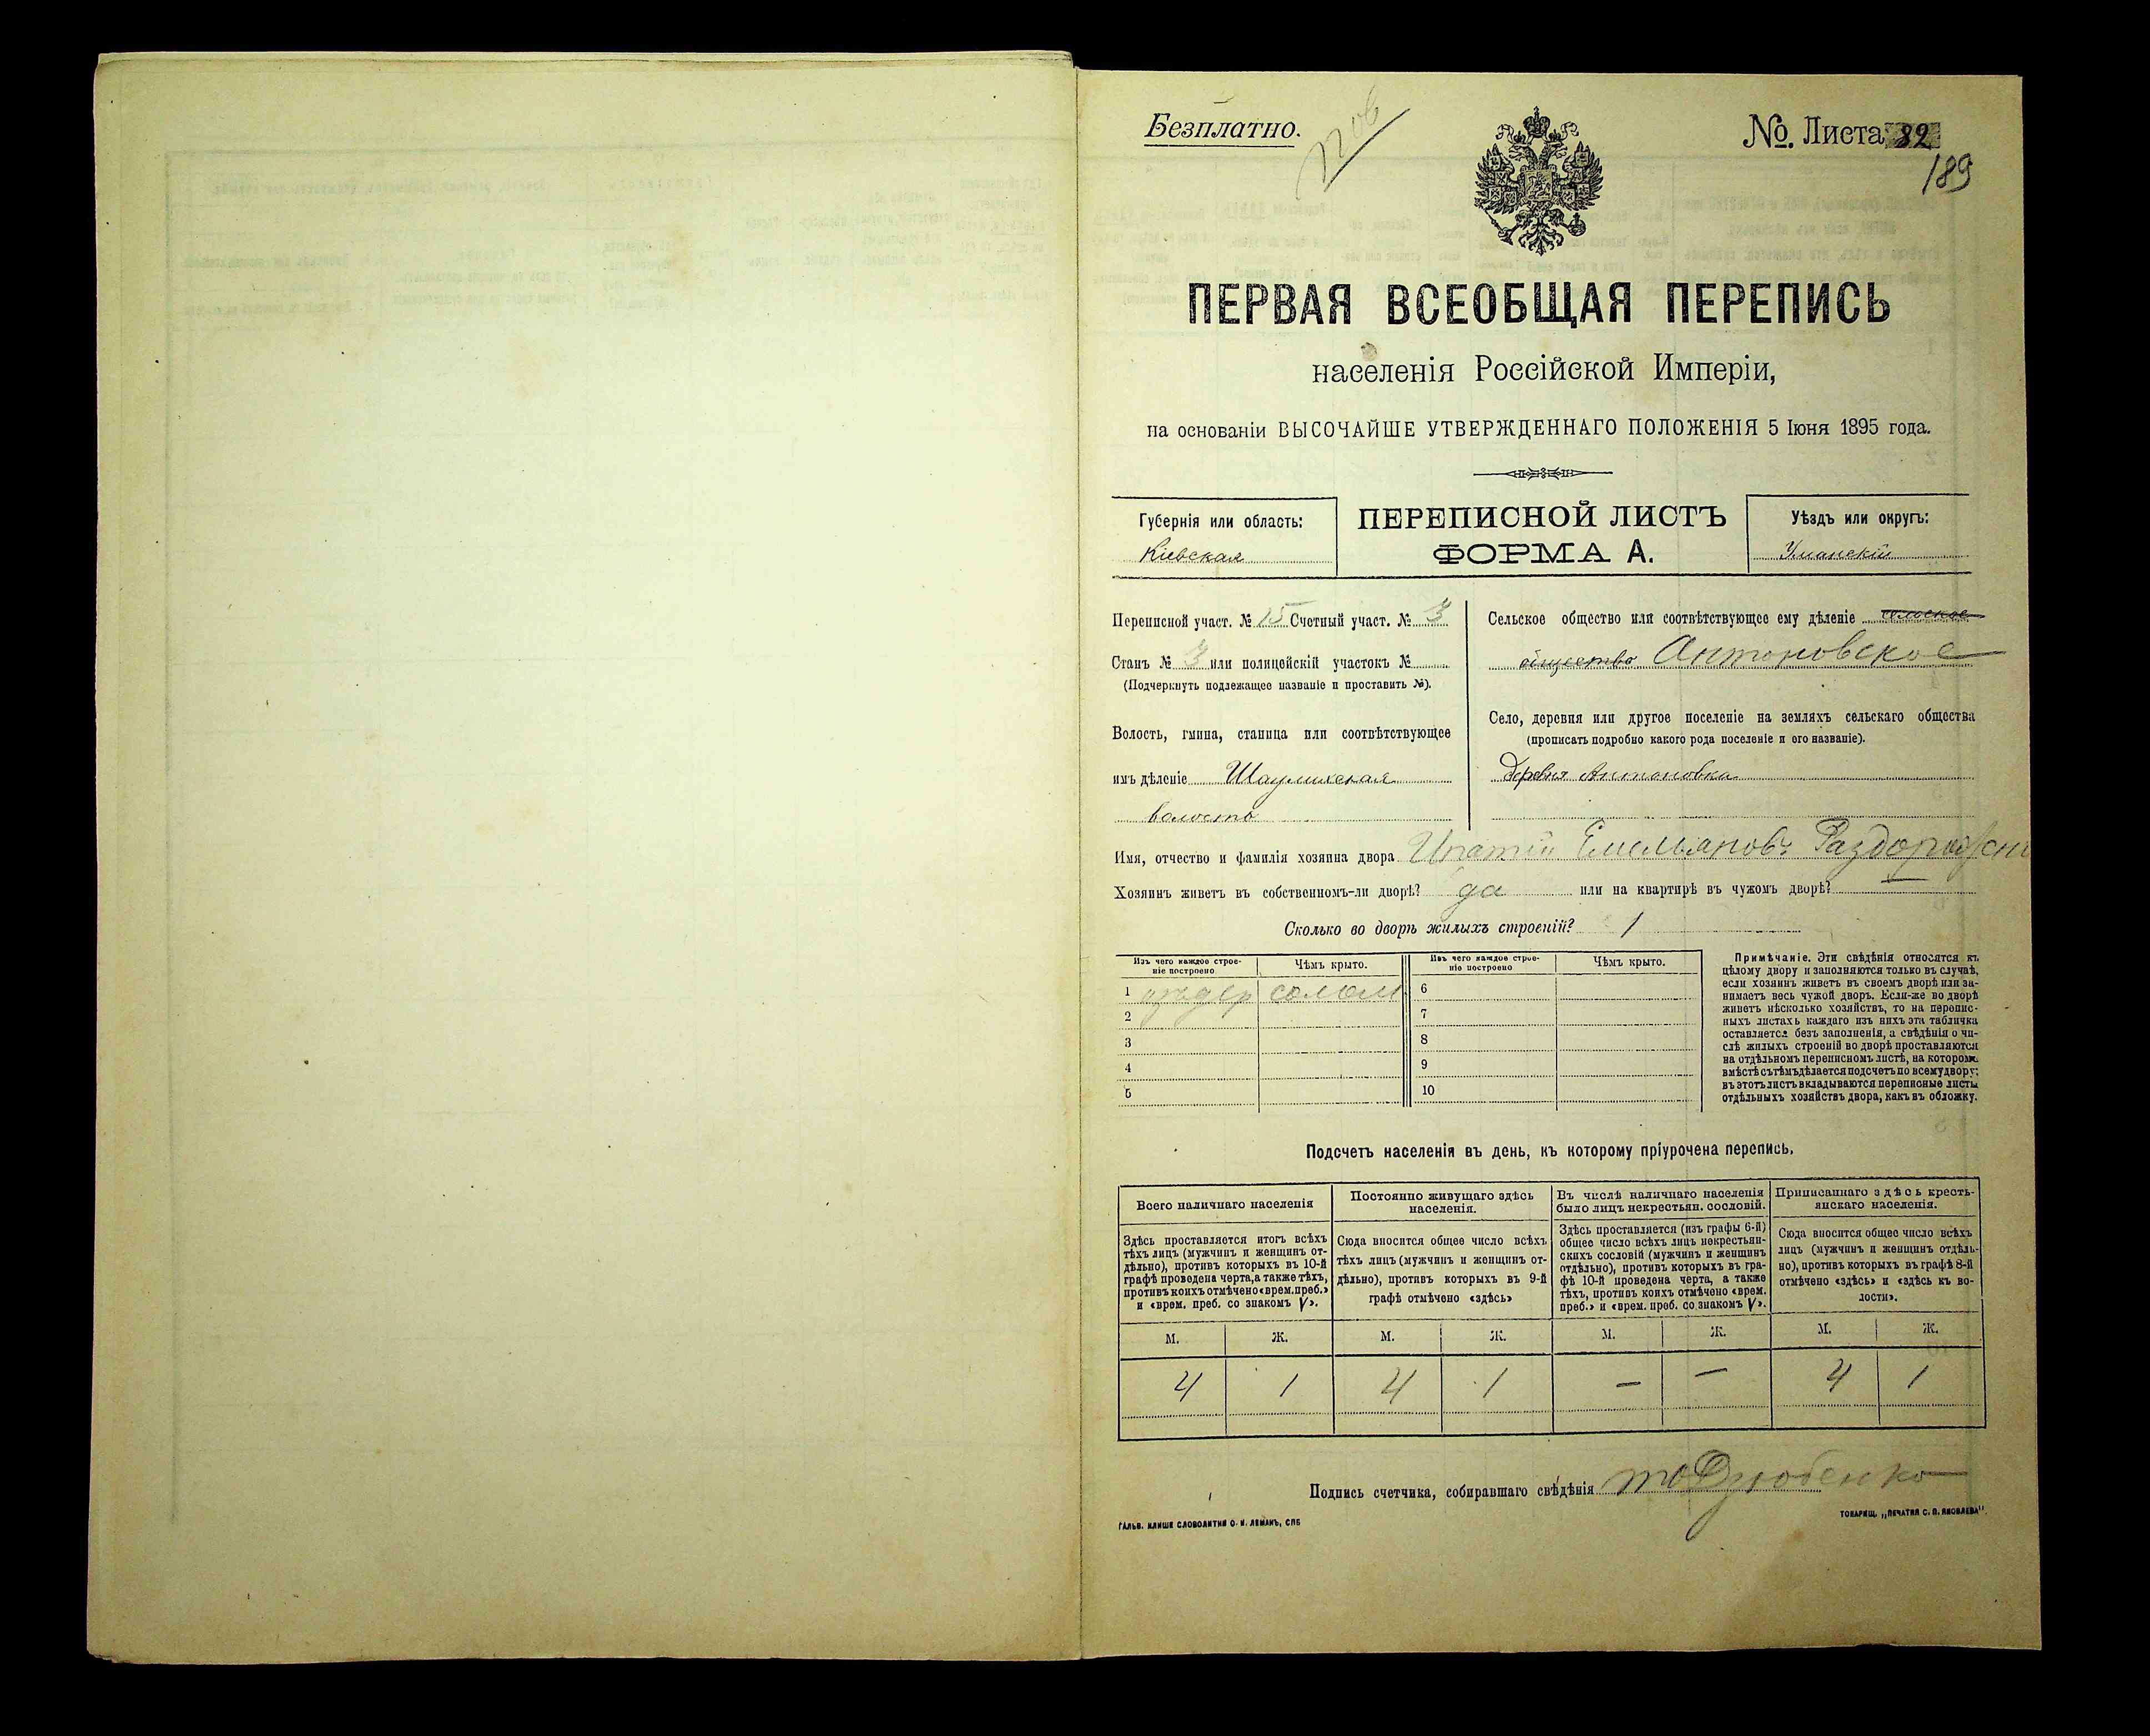 Безплатно.
№. Листа 82
189
ПЕРВАЯ ВСЕОБЩАЯ ПЕРЕПИСЬ
населенія Россійской Имперіи,
на основаніи ВЫСОЧАЙШЕ УТВЕРЖДЕННАГО ПОЛОЖЕНІЯ 5 Іюня 1895 года.
Губернія или область:
Кіевская
ПЕРЕПИСНОЙ ЛИСТЪ
ФОРМА А.
Уѣздъ или округъ:
Уманскій
Переписной участ. № 15 Счетный участ. № 3
Станъ № 3 или полицейскій участокъ №
(Подчеркнуть подлежащее названіе и проставить №).
Волость, гмина, станица или соотвѣтствующее
имъ дѣленіе
волость
Сельское общество или соотвѣтствующее ему дѣленіе сельское
общество Антоновское
Село, деревня или другое поселеніе на земляхъ сельскаго общества
(прописать подробно какого рода поселеніе и его названіе).
Деревня Антоновка
Имя, отчество и фамилія хозяина двора Ипатій Емельяновъ
Хозяинъ живетъ въ собственномъ-ли дворѣ? да или на квартирѣ въ чужомъ дворѣ? —
Сколько во дворѣ жилыхъ строеній? 1
Изъ чего каждое строе-
ніе построено
Чѣмъ крыто.
Изъ чего каждое строе-
ніе построено
Чѣмъ крыто.
1 изъ дер солом 6
2 7
3 8
4 9
5 10
Примѣчаніе. Эти свѣдѣнія относятся къ
цѣлому двору и заполняются только въ случаѣ,
если хозяинъ живетъ въ своемъ дворѣ или за-
нимаетъ весь чужой дворъ. Если-же во дворѣ
живетъ нѣсколько хозяйствъ, то на перепис-
ныхъ листахъ каждаго изъ нихъ эта табличка
оставляется безъ заполненія, а свѣдѣнія о чи-
слѣ жилыхъ строеній во дворѣ проставляются
на отдѣльномъ переписномъ листѣ, на которомъ
вмѣстѣ съ тѣмъ дѣлается подсчетъ по всему двору;
въ этотъ листъ вкладываются переписные листы
отдѣльныхъ хозяйствъ двора, какъ въ обложку.
Подсчетъ населенія въ день, къ которому пріурочена перепись.
Всего наличнаго населенія
Здѣсь проставляется итогъ всѣхъ
тѣхъ лицъ (мужчинъ и женщинъ от-
дѣльно), противъ которыхъ въ 10-й
графѣ проведена черта, а также тѣхъ,
противъ коихъ отмѣчено «врем. преб.»
и «врем. преб. со знакомъ V».
Постоянно живущаго здѣсь
населенія.
Сюда вносится общее число всѣхъ
тѣхъ лицъ (мужчинъ и женщинъ от-
дѣльно), противъ которыхъ въ 9-й
графѣ отмѣчено «здѣсь»
Въ числѣ наличнаго населенія
было лицъ некрестьян. сословій.
Здѣсь проставляется (изъ графы 6-й)
общее число всѣхъ лицъ некрестьян-
скихъ сословій (мужчинъ и женщинъ
отдѣльно), противъ которыхъ въ гра-
фѣ 10-й проведена черта, а также
тѣхъ, противъ коихъ отмѣчено «врем.
преб.» и «врем. преб. со знакомъ V».
Приписаннаго здѣсь кресть-
янскаго населенія.
Сюда вносится общее число всѣхъ
лицъ (мужчинъ и женщинъ отдѣль-
но), противъ которыхъ въ графѣ 8-й
отмѣчено «здѣсь» и «здѣсь къ во-
лости».
М. Ж. М. Ж. М. Ж. М. Ж.
4 1 4 1 — — 4 1
Подпись счетчика, собиравшаго свѣдѣнія
ГАЛЬВ. КЛИШЕ СЛОВОЛИТНИ О. И. ЛЕМАНЪ, СПБ
ТОВАРИЩ. „ПЕЧАТНЯ С. П. ЯКОВЛЕВА"